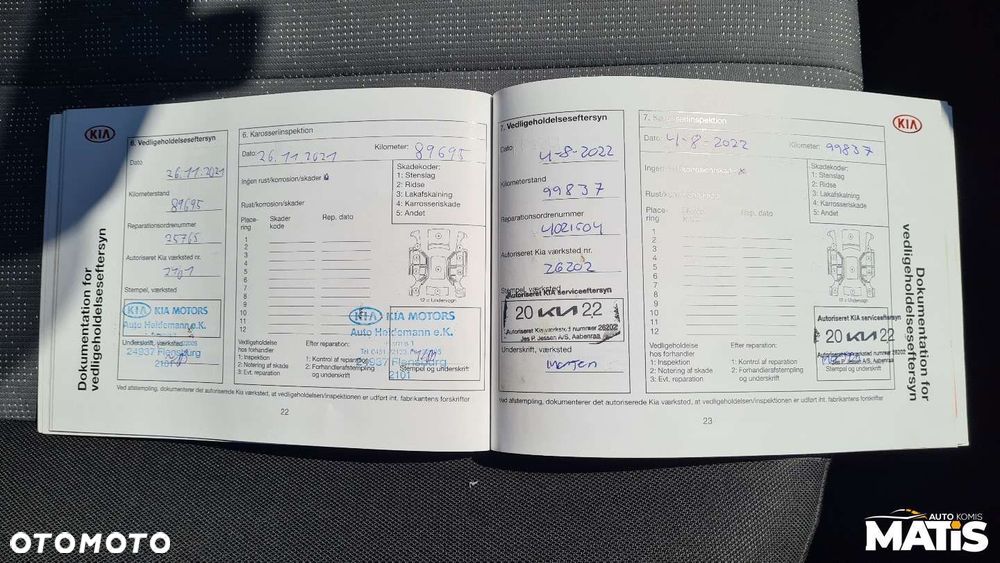 KIA
6. Vedligeholdelseseftersyn
Dato
26.11.2021
Kilometerstand
89695
Reparationsordrenummer
Autoriseret Kia værksted nr.
2101
Stempel, værksted
KIA MOTORS
Auto Heidemann e.K.
Underskrift, værksted
24937 Flensburg
2101
Dokumentation for
vedligeholdelseseftersyn
6. Karosseriinspektion
Dato: 26.11.2021
Kilometer: 89695
Ingen rust/korrosion/skader
Rust/korrosion/skader
Skadekoder:
1: Stenslag
2: Ridse
3: Lakafskalning
4: Karrosseriskade
5: Andet
Place-
ring
Skader
kode
Rep. dato
1
2
3
4
5
6
7
8
9
10
11
12
12 = Undervogn
KIA MOTORS
Auto Heidemann e.K.
24937 Flensburg
2101
Vedligeholdelse
hos forhandler
1: Inspektion
2: Notering af skade
3: Evt. reparation
Efter reparation:
1: Kontrol af reparation
2: Forhandlerafstempling
og underskrift
Stempel og underskrift
Ved afstempling, dokumenterer det autoriserede Kia værksted, at vedligeholdelsen/inspektionen er udført iht. fabrikantens forskrifter
22
7. Vedligeholdelseseftersyn
Dato
4-8-2022
Kilometerstand
99837
Reparationsordrenummer
4021504
Autoriseret Kia værksted nr.
26202
Stempel, værksted
Autoriseret KIA serviceeftersyn
20 KIA 22
Autoriseret Kia værksted nummer 26202
Jes P. Jessen A/S, Aabenraa
Underskrift, værksted
Morten
7. Karosseriinspektion
Dato: 4-8-2022
Kilometer: 99837
KIA
Skadekoder:
1: Stenslag
2: Ridse
3: Lakafskalning
4: Karrosseriskade
5: Andet
Place-
ring
Rep. dato
1
2
3
4
5
6
7
8
9
10
11
12
12 = Undervogn
Autoriseret KIA serviceeftersyn
20 KIA 22
Autoriseret Kia værksted nummer 26202
Jes P. Jessen A/S, Aabenraa
Vedligeholdelse
hos forhandler
1: Inspektion
2: Notering af skade
3: Evt. reparation
Efter reparation:
1: Kontrol af reparation
2: Forhandlerafstempling
og underskrift
Stempel og underskrift
Ved afstempling, dokumenterer det autoriserede Kia værksted, at vedligeholdelsen/inspektionen er udført iht. fabrikantens forskrifter
23
Dokumentation for
vedligeholdelseseftersyn
OTOMOTO
AUTO KOMIS
MATIS